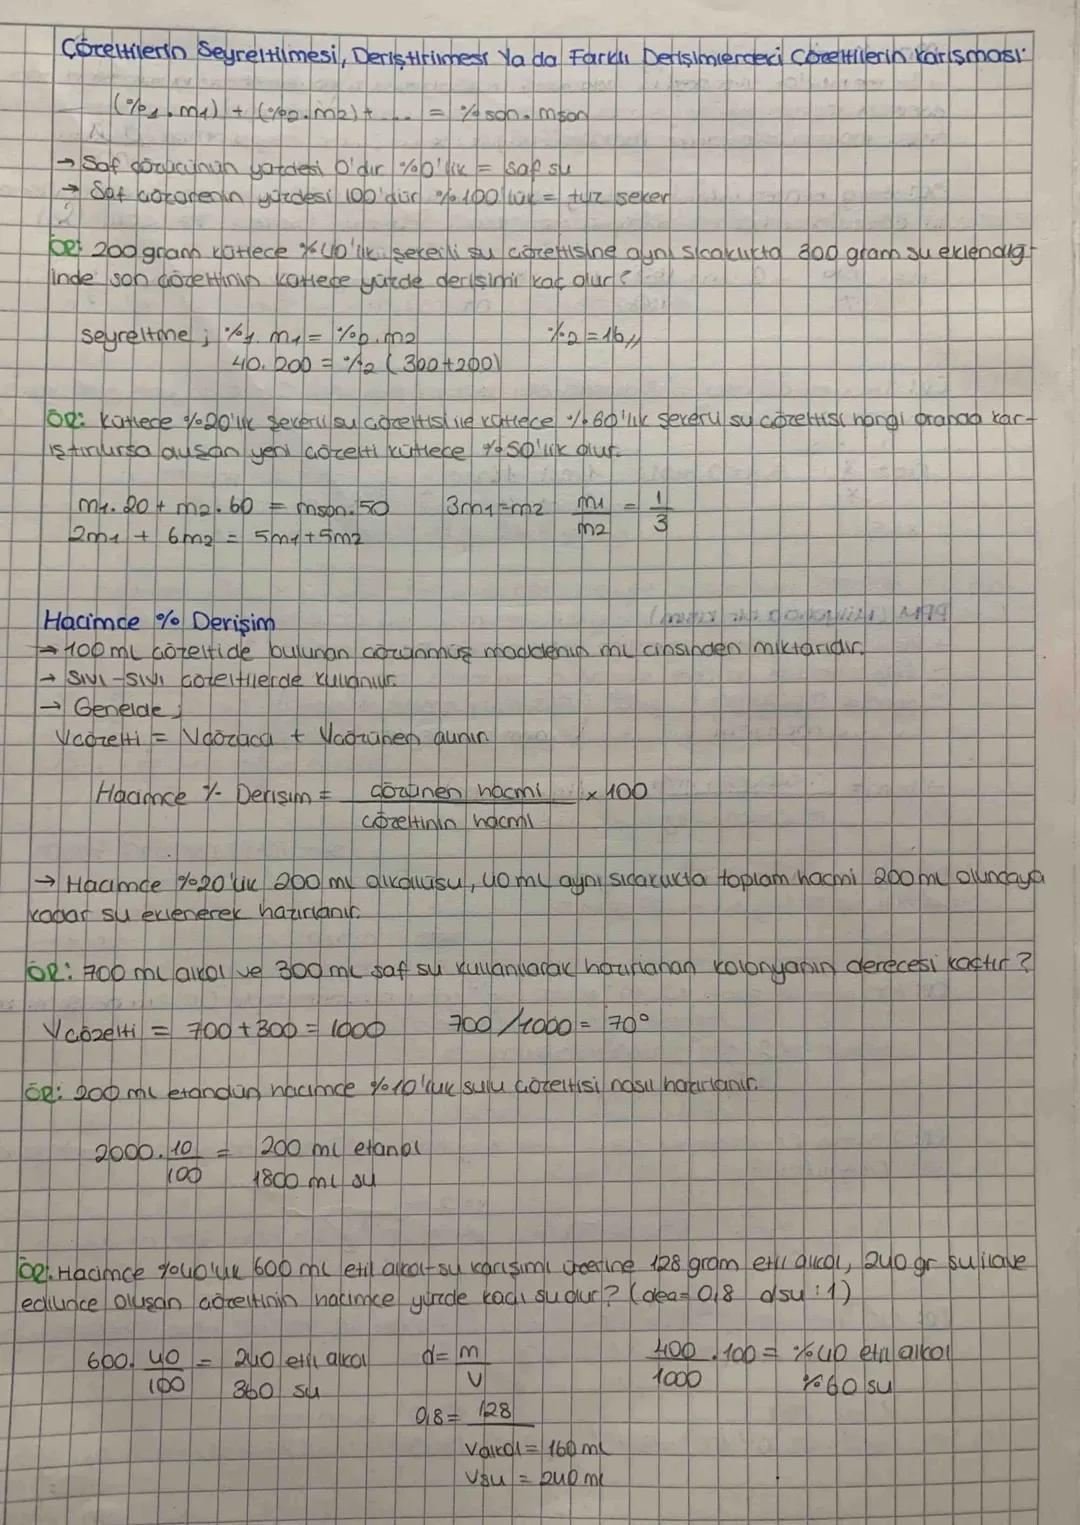 Çözeltilerin Seyreltilmesi, Deriştirilmesi Ya da Farklı Derişimlerdeki Çözeltilerin Karışması:
(%1.m1) + (%2.m2) + ... = %son.mson
→ Saf çözücünün yüzdesi 0'dır %0'lık = saf su
→ Saf çözünenin yüzdesi 100'dür %100'lük = tuz şeker
ÖR: 200 gram kütlece %40'lık şekerli su çözeltisine aynı sıcaklıkta 300 gram su eklendiğ-
inde son çözeltinin kütlece yüzde derişimi kaç olur?
Seyreltme; %1.m1 = %2.m2 %2=16//
40.200 = %2 (300+200)
ÖR: Kütlece %20'lik şekerli su çözeltisi ile kütlece %60'lık şekerli su çözeltisi hangi oranda kar-
ıştırılırsa oluşan yeni çözelti kütlece %50'lik olur.
m1.20 + m2.60 = mson.50 3m1=m2 m1/m2 = 1/3
2m1 + 6m2 = 5m1+5m2
Hacimce % Derişim
→ 100 mL çözeltide bulunan çözünmüş maddenin mL cinsinden miktarıdır.
→ Sıvı-sıvı çözeltilerde kullanılır.
→ Genelde;
Vçözelti = Vçözücü + Vçözünen alınır
Hacimce % Derişim = çözünen hacmi / çözeltinin hacmi x 100
→ Hacimce %20'lik 200 mL alkollü su, 40 mL aynı sıcaklıkta toplam hacmi 200 mL oluncaya
kadar su eklenerek hazırlanır.
ÖR: 700 mL alkol ve 300 mL saf su kullanılarak hazırlanan kolonyanın derecesi kaçtır?
Vçözelti = 700+300 = 1000 700/1000 = 70°
ÖR: 200 mL etanolün hacimce %10'luk sulu çözeltisi nasıl hazırlanır.
2000.10/100 = 200 mL etanol
1800 mL su
ÖR: Hacimce %40'lık 600 mL etil alkol-su karışımı üzerine 128 gram etil alkol, 240 gr su ilave
edilince oluşan çözeltinin hacimce yüzde kaçı sudur? (dea=0,8 dsu:1)
600.40/100 = 240 etil alkol d=m/V 400/1000.100 = %40 etil alkol
360 su %60 su
0,8= 128
Valkol = 160 mL
Vsu = 240 ml